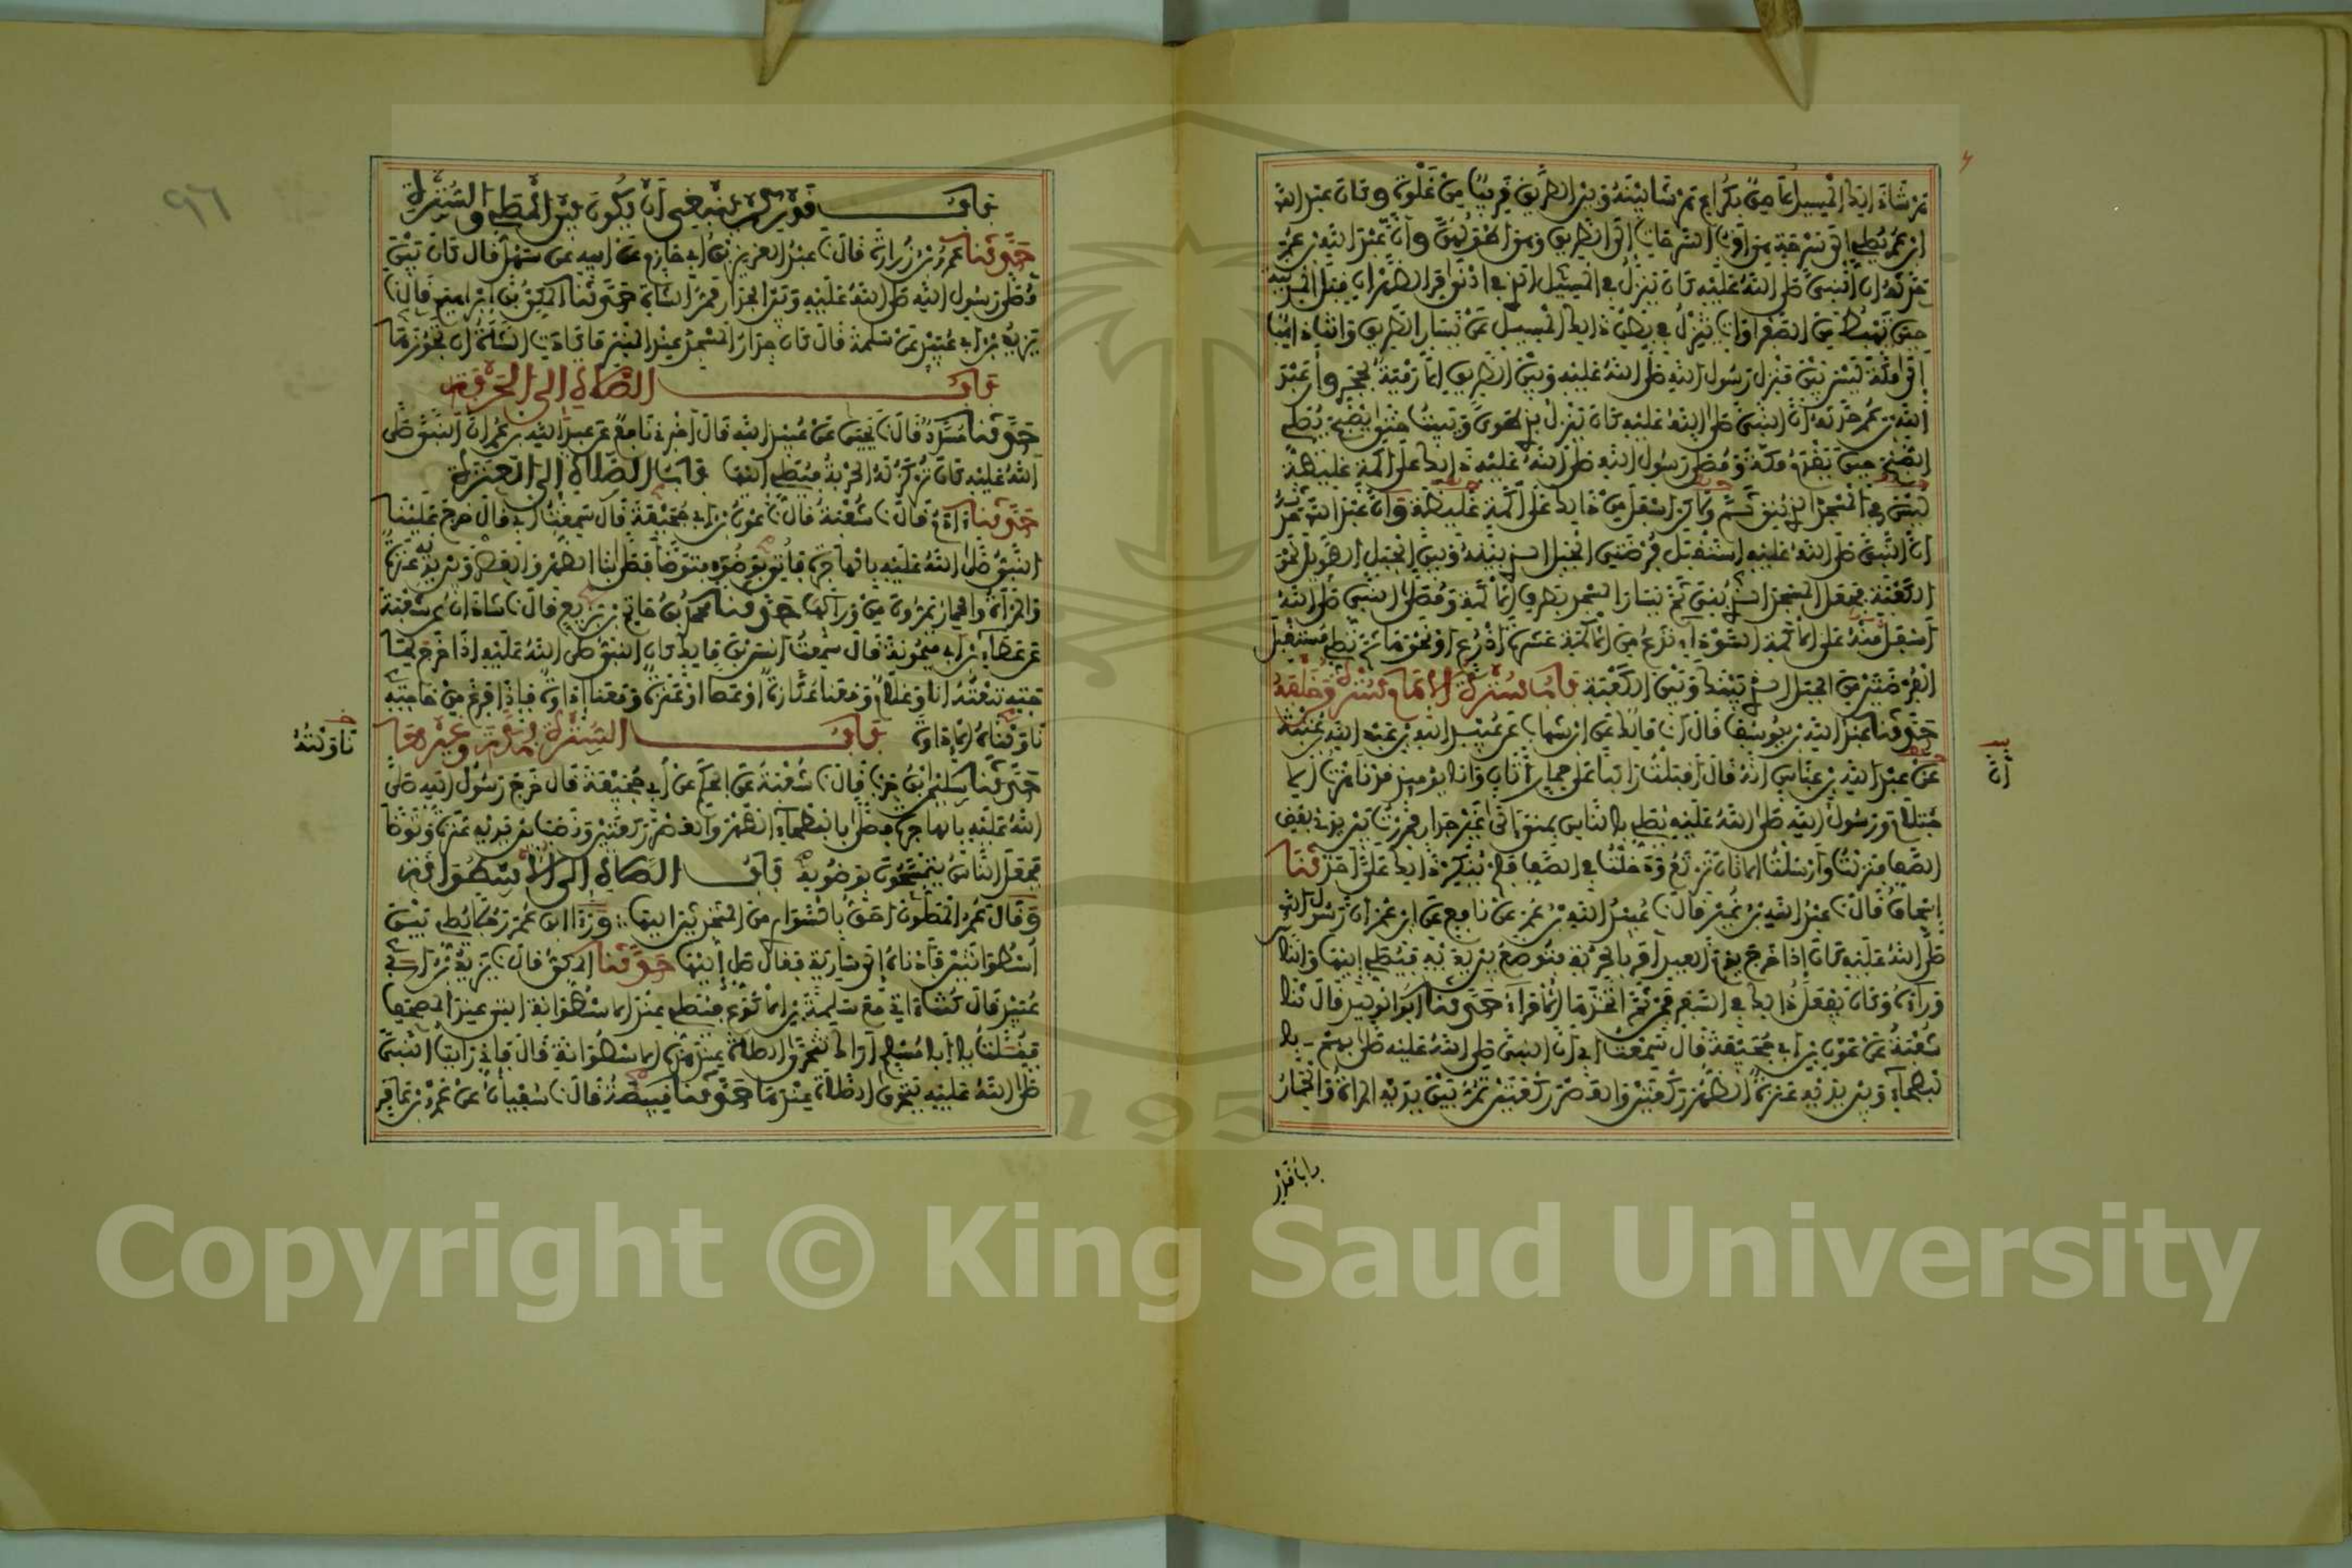 هرشى ذلك المسيل لاصق بكراع هرشى بينه وبين الطريق قريب من غلوة وكان عبد الله
ابن عمر يصلي إلى سرحة هي أقرب السرحات إلى الطريق وهي أطولهن وأن عبد الله بن عمر
حدثه أن النبي صلى الله عليه كان ينزل في المسيل الذي في أدنى مر الظهران قبل المدينة
حين تهبط من الصفراوات تنزل في بطن ذلك المسيل عن يسار الطريق وأنت ذاهب
إلى مكة ليس بين منزل رسول الله صلى الله عليه وبين الطريق إلا رمية بحجر وأن عبد
الله بن عمر حدثه أن النبي صلى الله عليه كان ينزل بذي طوى ويبيت حتى يصبح يصلي
الصبح حين يقدم مكة ومصلى رسول الله صلى الله عليه ذلك على أكمة غليظة
ليس في المسجد الذي بني ثم ولكن أسفل من ذلك على أكمة غليظة وأن عبد الله حدثه
أن النبي صلى الله عليه استقبل فرضتي الجبل الذي بينه وبين الجبل الطويل نحو
الكعبة فجعل المسجد الذي بني ثم يسار المسجد بطرف الأكمة ومصلى النبي صلى الله
أسفل منه على الأكمة السوداء تدع من الأكمة عشرة أذرع أو نحوها ثم تصلي مستقبل
الفرضتين من الجبل الذي بينك وبين الكعبة باب سترة الإمام سترة من خلفه
حدثنا عبد الله بن يوسف قال أنا مالك عن ابن شهاب عن عبيد الله بن عبد الله بن عتبة
عن عبد الله بن عباس أنه قال أقبلت راكبا على حمار أتان وأنا يومئذ قد ناهزت الا
حتلام ورسول الله صلى الله عليه يصلي بالناس بمنى إلى غير جدار فمررت بين يدي بعض
الصف فنزلت وأرسلت الأتان ترتع ودخلت في الصف فلم ينكر ذلك علي أحد حدثنا
إسحاق قال نا عبد الله بن نمير قال نا عبيد الله بن عمر عن نافع عن ابن عمر أن رسول الله
صلى الله عليه كان إذا خرج يوم العيد أمر بالحربة فتوضع بين يديه فيصلي إليها والناس
وراءه وكان يفعل ذلك في السفر فمن ثم اتخذها الأمراء حدثنا أبو الوليد قال نا
شعبة عن عون بن أبي جحيفة قال سمعت أبي أن النبي صلى الله عليه صلى بهم بالـ
بطحاء وبين يديه عنزة الظهر ركعتين والعصر ركعتين تمر بين يديه المرأة والحمار
أن
باب قدر
باب قدر كم ينبغي أن يكون بين المصلي والسترة
حدثنا عمرو بن زرارة قال نا عبد العزيز بن أبي حازم عن أبيه عن سهل قال كان بين
مصلى رسول الله صلى الله عليه وبين الجدار ممر الشاة حدثنا المكي بن إبراهيم قال نا
يزيد بن أبي عبيد عن سلمة قال كان جدار المسجد عند المنبر ما كادت الشاة أن تجوزها
باب الصلاة إلى الحربة
حدثنا مسدد قال نا يحيى عن عبيد الله قال أخبرني نافع عن عبد الله بن عمر أن النبي صلى
الله عليه كان تركز له الحربة فيصلي إليها باب الصلاة إلى العنزة
حدثنا آدم قال نا شعبة قال نا عون بن أبي جحيفة قال سمعت أبي قال خرج علينا
النبي صلى الله عليه بالهاجرة فأتي بوضوء فتوضأ فصلى بنا الظهر والعصر وبين يديه عنزة
والمرأة والحمار يمرون من ورائها حدثنا محمد بن حاتم بن بزيع قال نا شاذان عن شعبة
عن عطاء بن أبي ميمونة قال سمعت أنس بن مالك كان النبي صلى الله عليه إذا خرج لحا
جته تبعته أنا وغلام ومعنا عكازة أو عصا أو عنزة ومعنا إداوة فإذا فرغ من حاجته
ناولناه الإداوة باب السترة بمكة وغيرها
ناولته
حدثنا سليمان بن حرب قال نا شعبة عن الحكم عن أبي جحيفة قال خرج رسول الله صلى
الله عليه بالهاجرة فصلى بالبطحاء الظهر والعصر ركعتين ونصب بين يديه عنزة وتوضأ
فجعل الناس يتمسحون بوضوئه باب الصلاة إلى الأسطوانة
وقال عمر المصلون أحق بالسواري من المتحدثين إليها ورأى ابن عمر رجلا يصلي بين
أسطوانتين فأدناه إلى سارية فقال صل إليها حدثنا المكي قال نا يزيد بن أبي
عبيد قال كنت آتي مع سلمة بن الأكوع فيصلي عند الأسطوانة التي عند المصحف
فقلت يا أبا مسلم أراك تتحرى الصلاة عند هذه الأسطوانة قال فإني رأيت النبي
صلى الله عليه يتحرى الصلاة عندها حدثنا قبيصة قال نا سفيان عن عمرو بن عامر
٩٦
Copyright © King Saud University
1957